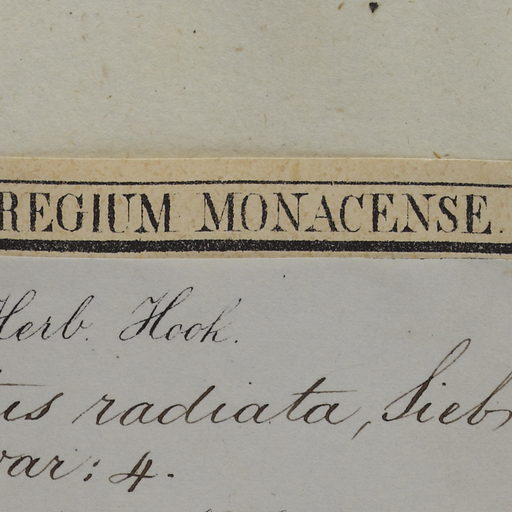 REGIUM MONACENSE.
Herb. Hook.
tus radiata, Sieb
var: 4.